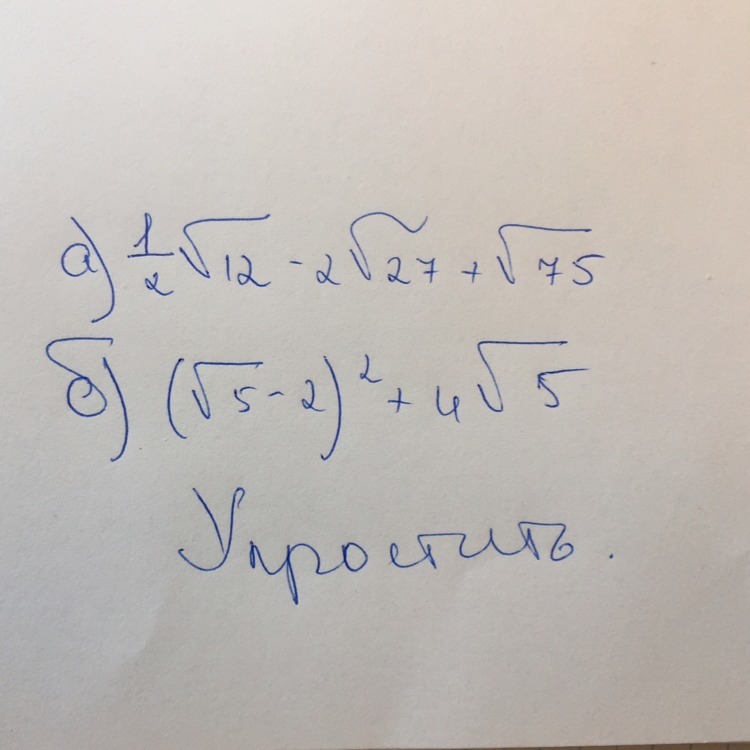 а) 1/2 √12 - 2√27 + √75
б) (√5 - 2)² + 4√5
Упростить.